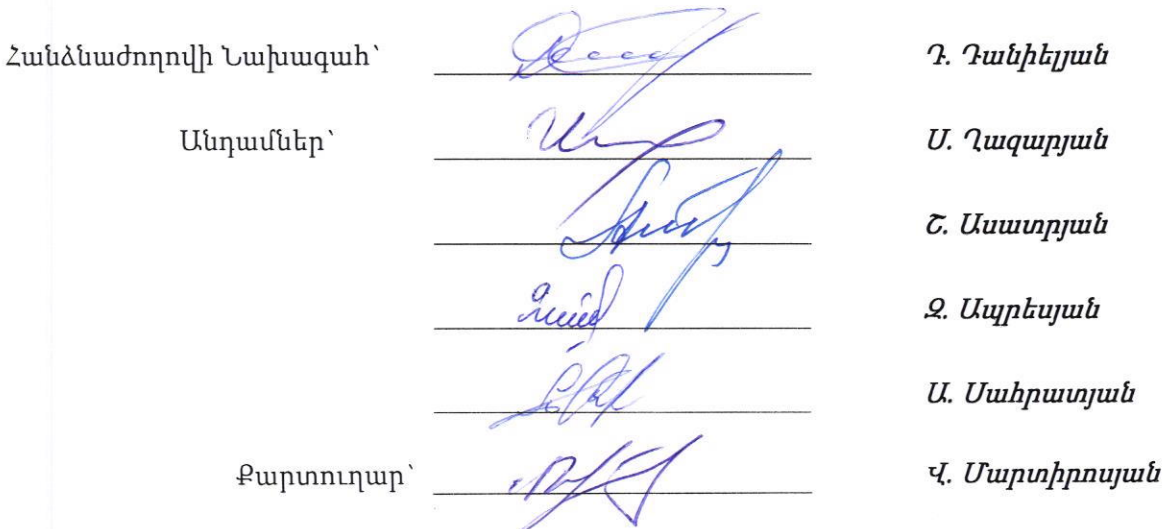 Հանձնաժողովի Նախագահ՝ Դ. Դանիելյան
Անդամներ՝ Ս. Ղազարյան
Շ. Ասատրյան
Զ. Ապրեսյան
Ա. Սահրատյան
Քարտուղար՝ Վ. Մարտիրոսյան